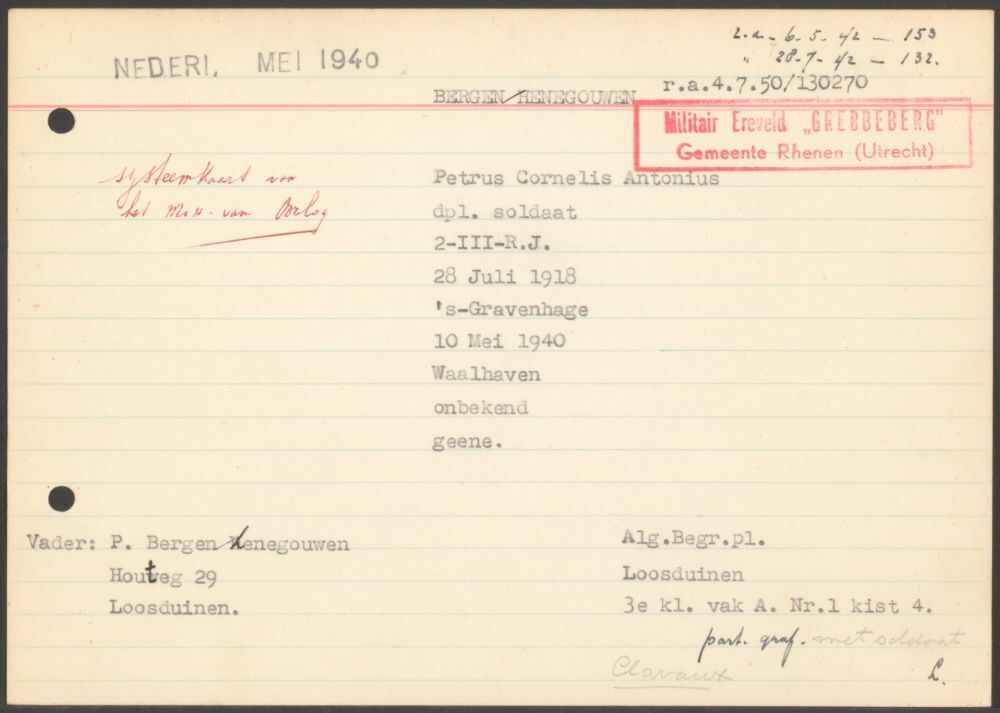 2.a. 6-5-42 — 153
NEDERL. MEI 1940
" 28-7-42 — 132.
r.a.4.7.50/130270
BERGEN HENEGOUWEN
Militair Ereveld „GREBBEBERG"
Gemeente Rhenen (Utrecht)
systeemkaart van
het Min. van Oorlog
Petrus Cornelis Antonius
dpl. soldaat
2-III-R.J.
28 Juli 1918
's-Gravenhage
10 Mei 1940
Waalhaven
onbekend
geene.
Vader: P. Bergen henegouwen
Houtweg 29
Loosduinen.
Alg.Begr.pl.
Loosduinen
3e kl. vak A. Nr.1 kist 4.
part. graf. met soldaat
Clavaux
L.